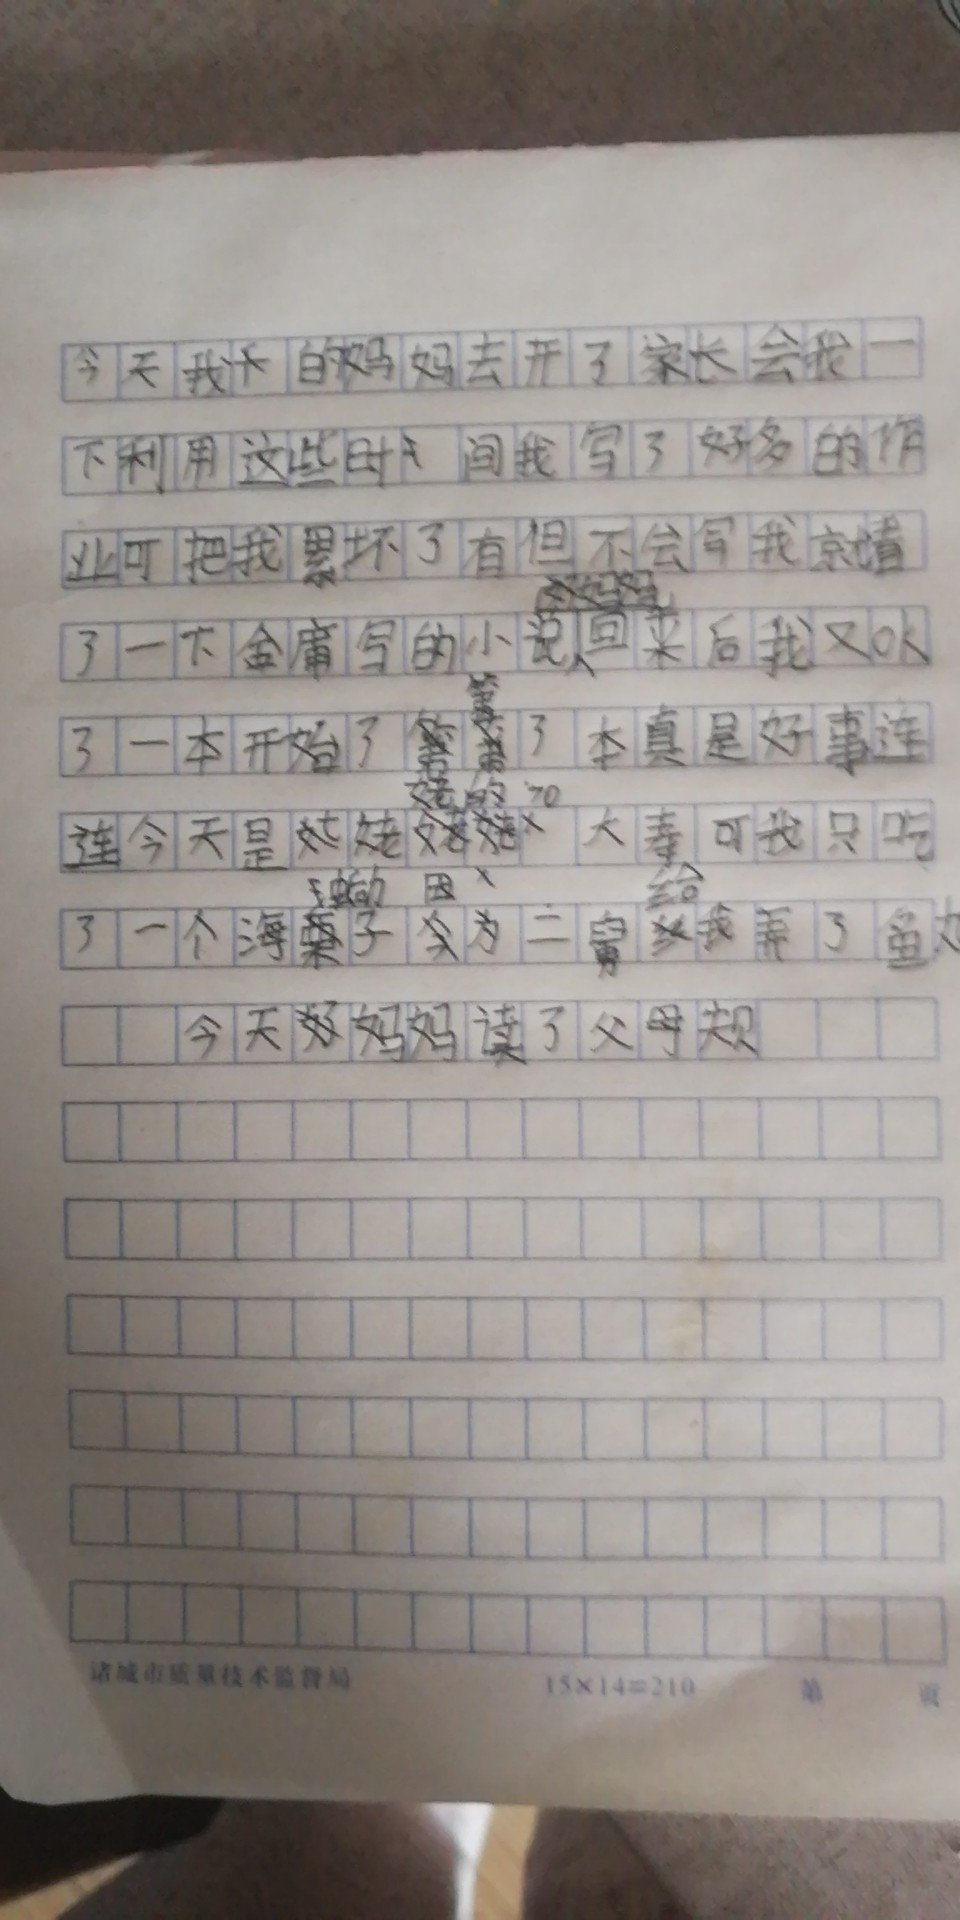 今天我的妈妈去开了家长会我一
下利用这些时间我写了好多的作
业可把我累坏了有但不会写我就猜
了一下金庸写的小说回来后我又
了一本开始了第了本真是好事连
连今天是姥姥的70大寿可我只吃
了一个海子因为二舅给我弄了鱼丸
今天好妈妈读了父母规
诸城市质量技术监督局 15×14=210 第 页